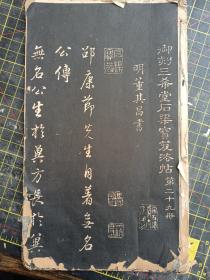 御刻三希堂石渠寶笈法帖第二十九冊
明董其昌書
邵康節先生自著無名
公傳
無名公生於冀方長於冀